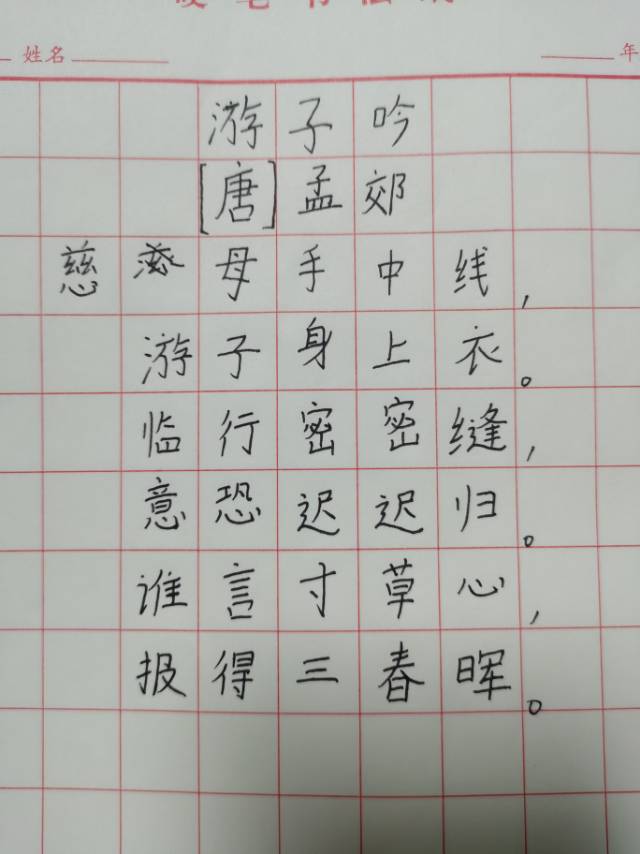 姓名
年
游子吟
[唐]孟郊
慈母手中线，
游子身上衣。
临行密密缝，
意恐迟迟归。
谁言寸草心，
报得三春晖。